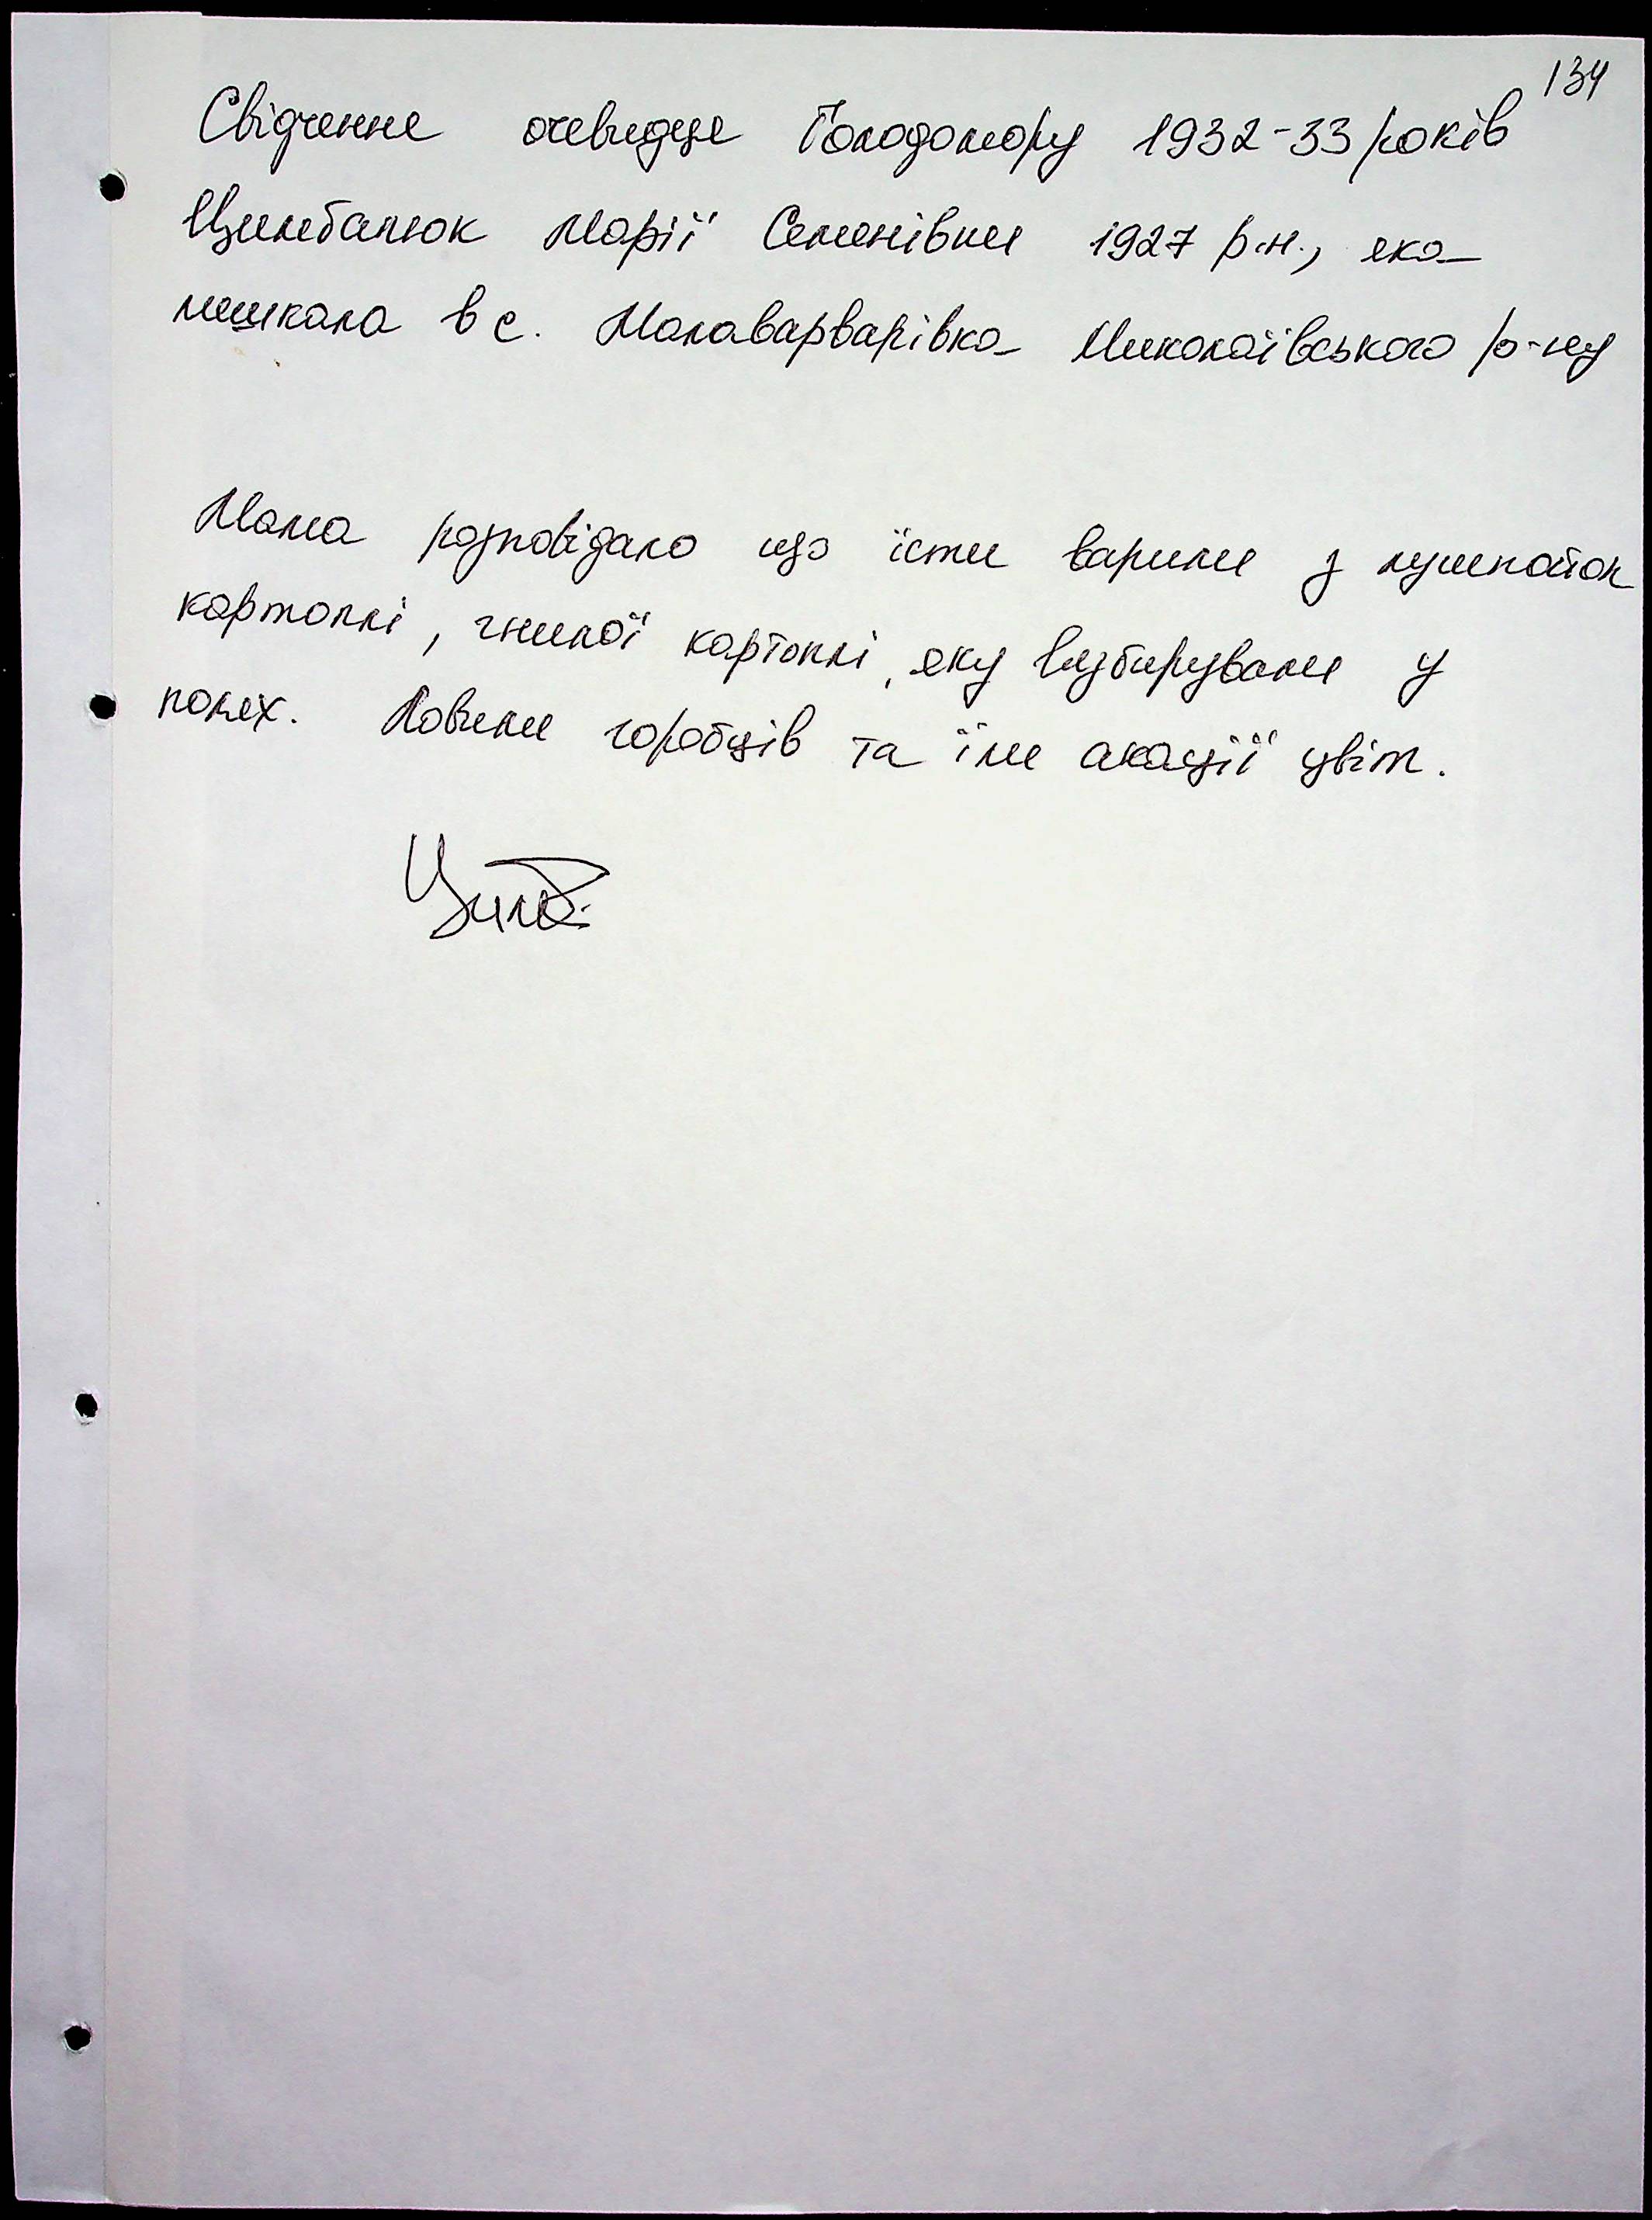 134
Свідчення очевидця Голодомору 1932-33 років
Цимбалюк Марії Семенівни 1927 р.н., яка
мешкала в с. Малаварварівка Миколаївського р-ну
Мама розповідала що їсти варили з лушпайок
картоплі, гнилої картоплі, яку визбирували у
полях. Ловили горобців та їли акації цвіт.
Цимб.